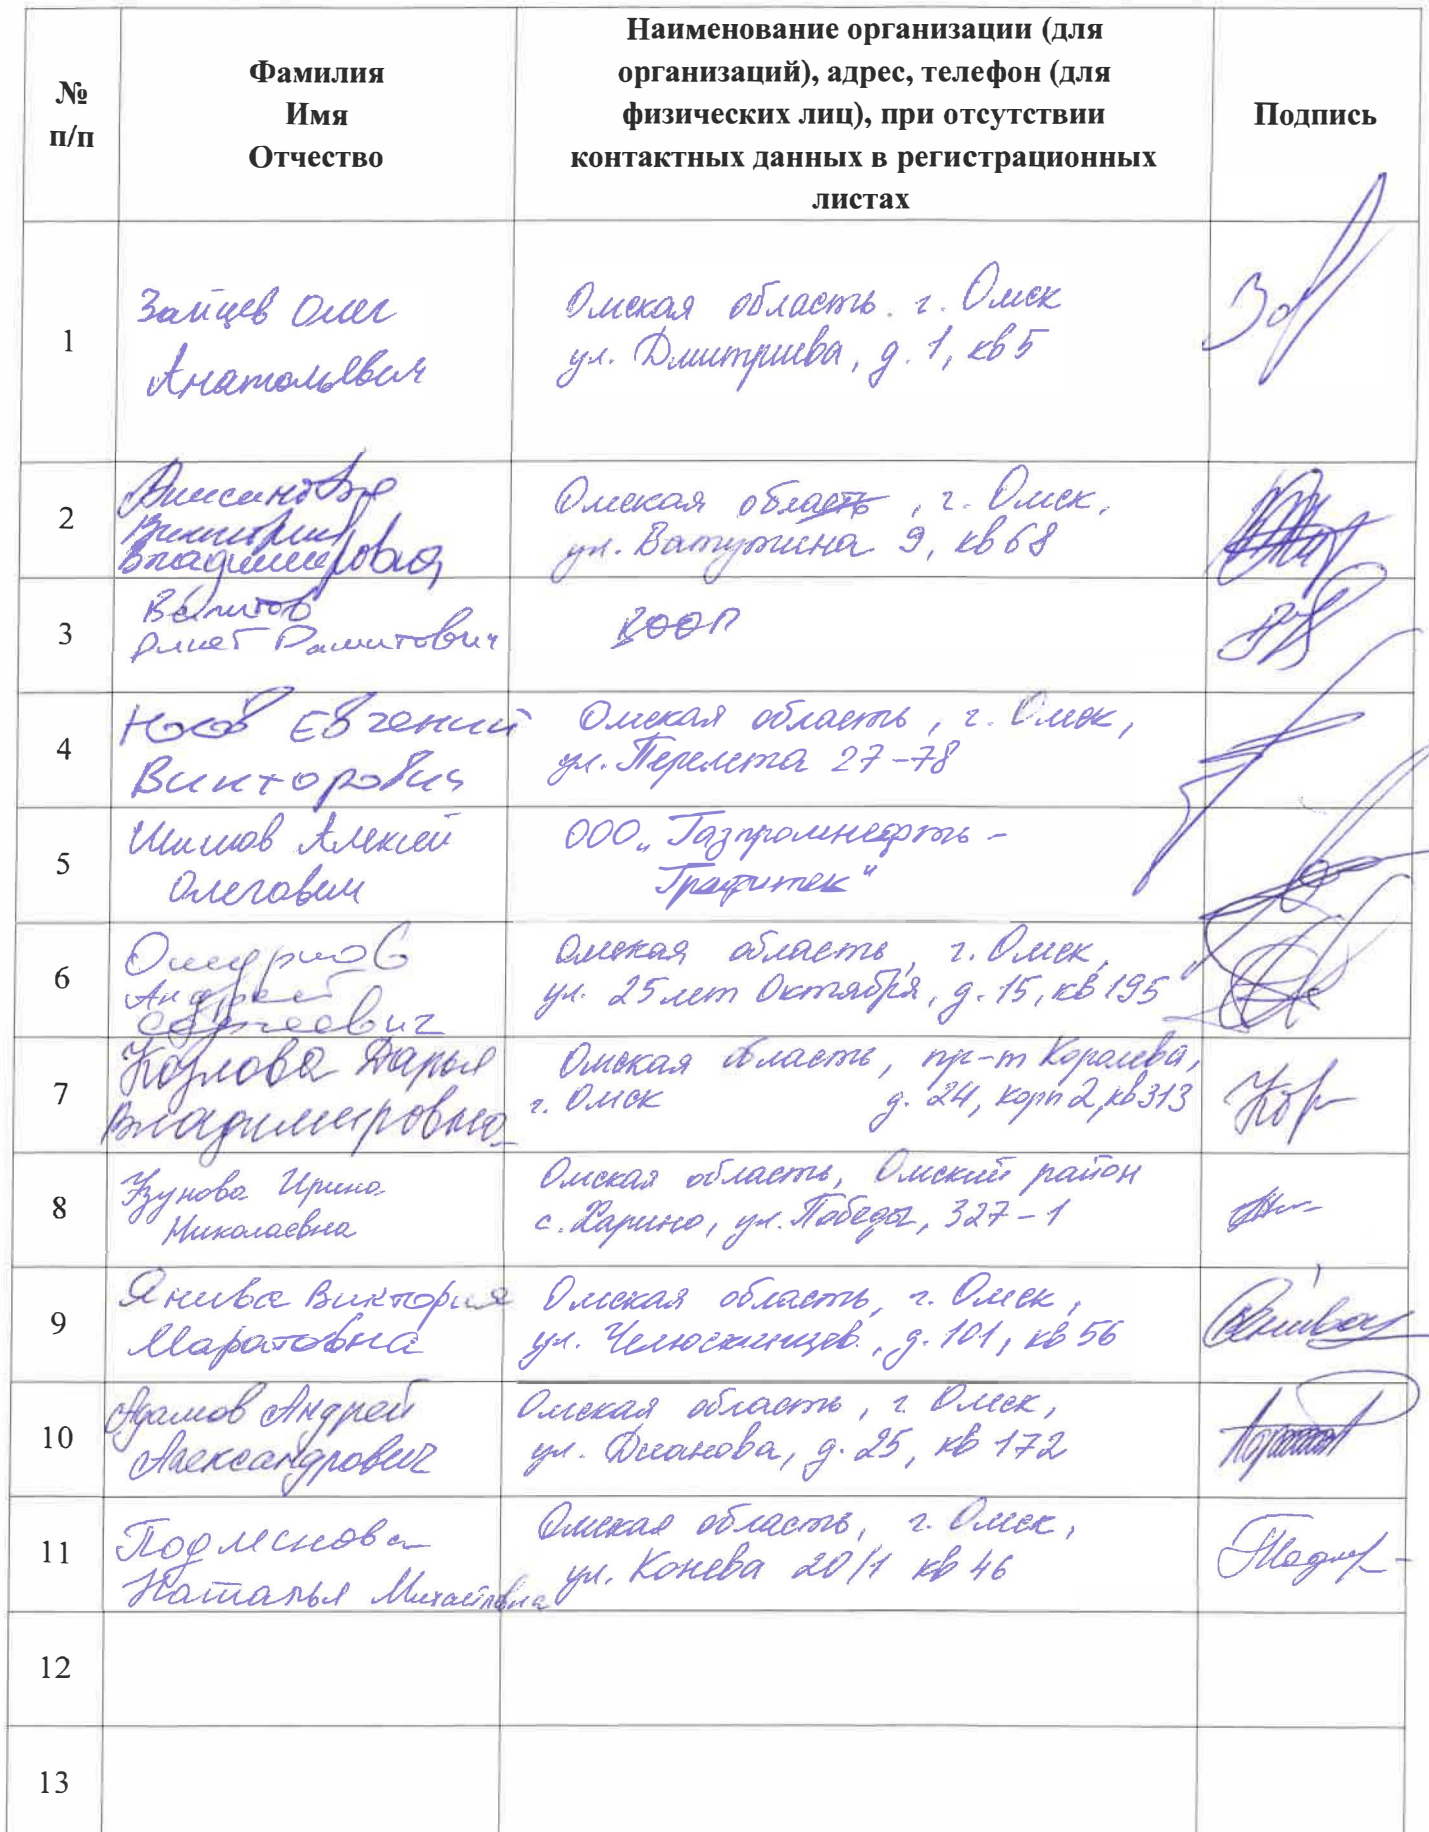 №
п/п
Фамилия
Имя
Отчество
Наименование организации (для
организаций), адрес, телефон (для
физических лиц), при отсутствии
контактных данных в регистрационных
листах
Подпись
1
Зайцев Олег
Анатольевич
Омская область. г. Омск
ул. Дмитриева, д. 1, кв 5
2
Виктория
Владимировна
Омская область, г. Омск,
ул. Ватутина 9, кв 68
3
Вагитов
Дамитович
4
Евгений
Викторович
Омская область, г. Омск,
ул. Перелета 27-78
5
Шишов Алексей
Олегович
ООО „Газпромнефть -
Графитек"
6
Андрей
Сергеевич
Омская область, г. Омск,
ул. 25 лет Октября, д. 15, кв 195
7
Козлова Дарья
Владимировна
Омская область, пр-т Королева,
г. Омск д. 24, корп 2, кв 313
8
Узунова Ирина
Николаевна
Омская область, Омский район
с. Харино, ул. Победы, 327-1
9
Янива Виктория
Маратовна
Омская область, г. Омск,
ул. Челюскинцев., д. 101, кв 56
10
Адамов Андрей
Александрович
Омская область, г. Омск,
ул. Дианова, д. 25, кв 172
11
Подлеснова
Наталья Михайловна
Омская область, г. Омск,
ул. Конева 20/1 кв 46
12
13